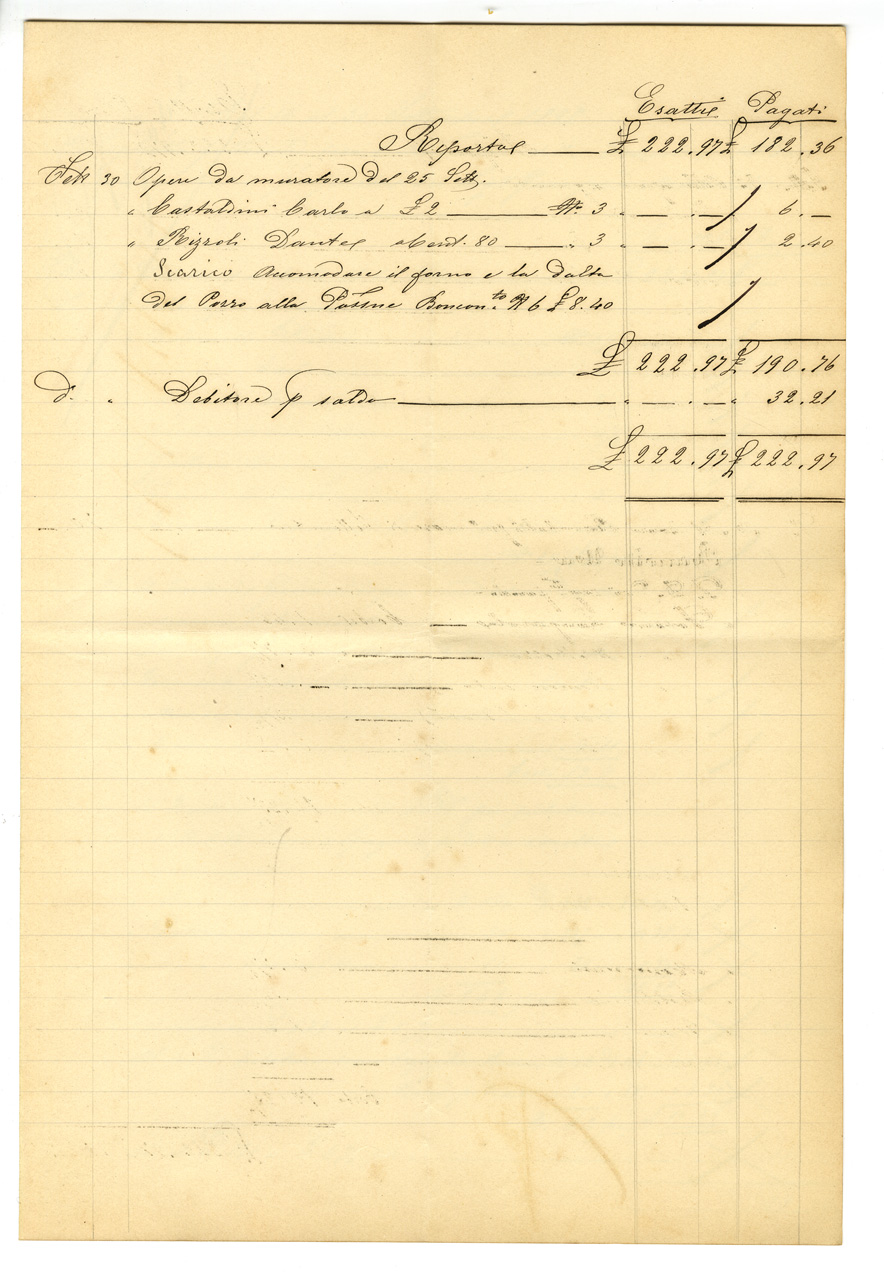 Esatti Pagati
Riporto £ 222.97 £ 182.36
30 Opere da muratore del 25 Sett.
" Castaldini Carlo a £ 2 N. 3 " — . — 6 . —
" Rizzoli Dante a Cent. 80 " 3 " — . — 2 . 40
Scarico Accomodare il forno e la
del Pozzo alla N 6 £ 8.40
£ 222.97 £ 190.76
d. " Debitore p saldo " — . — " 32.21
£ 222.97 £ 222.97